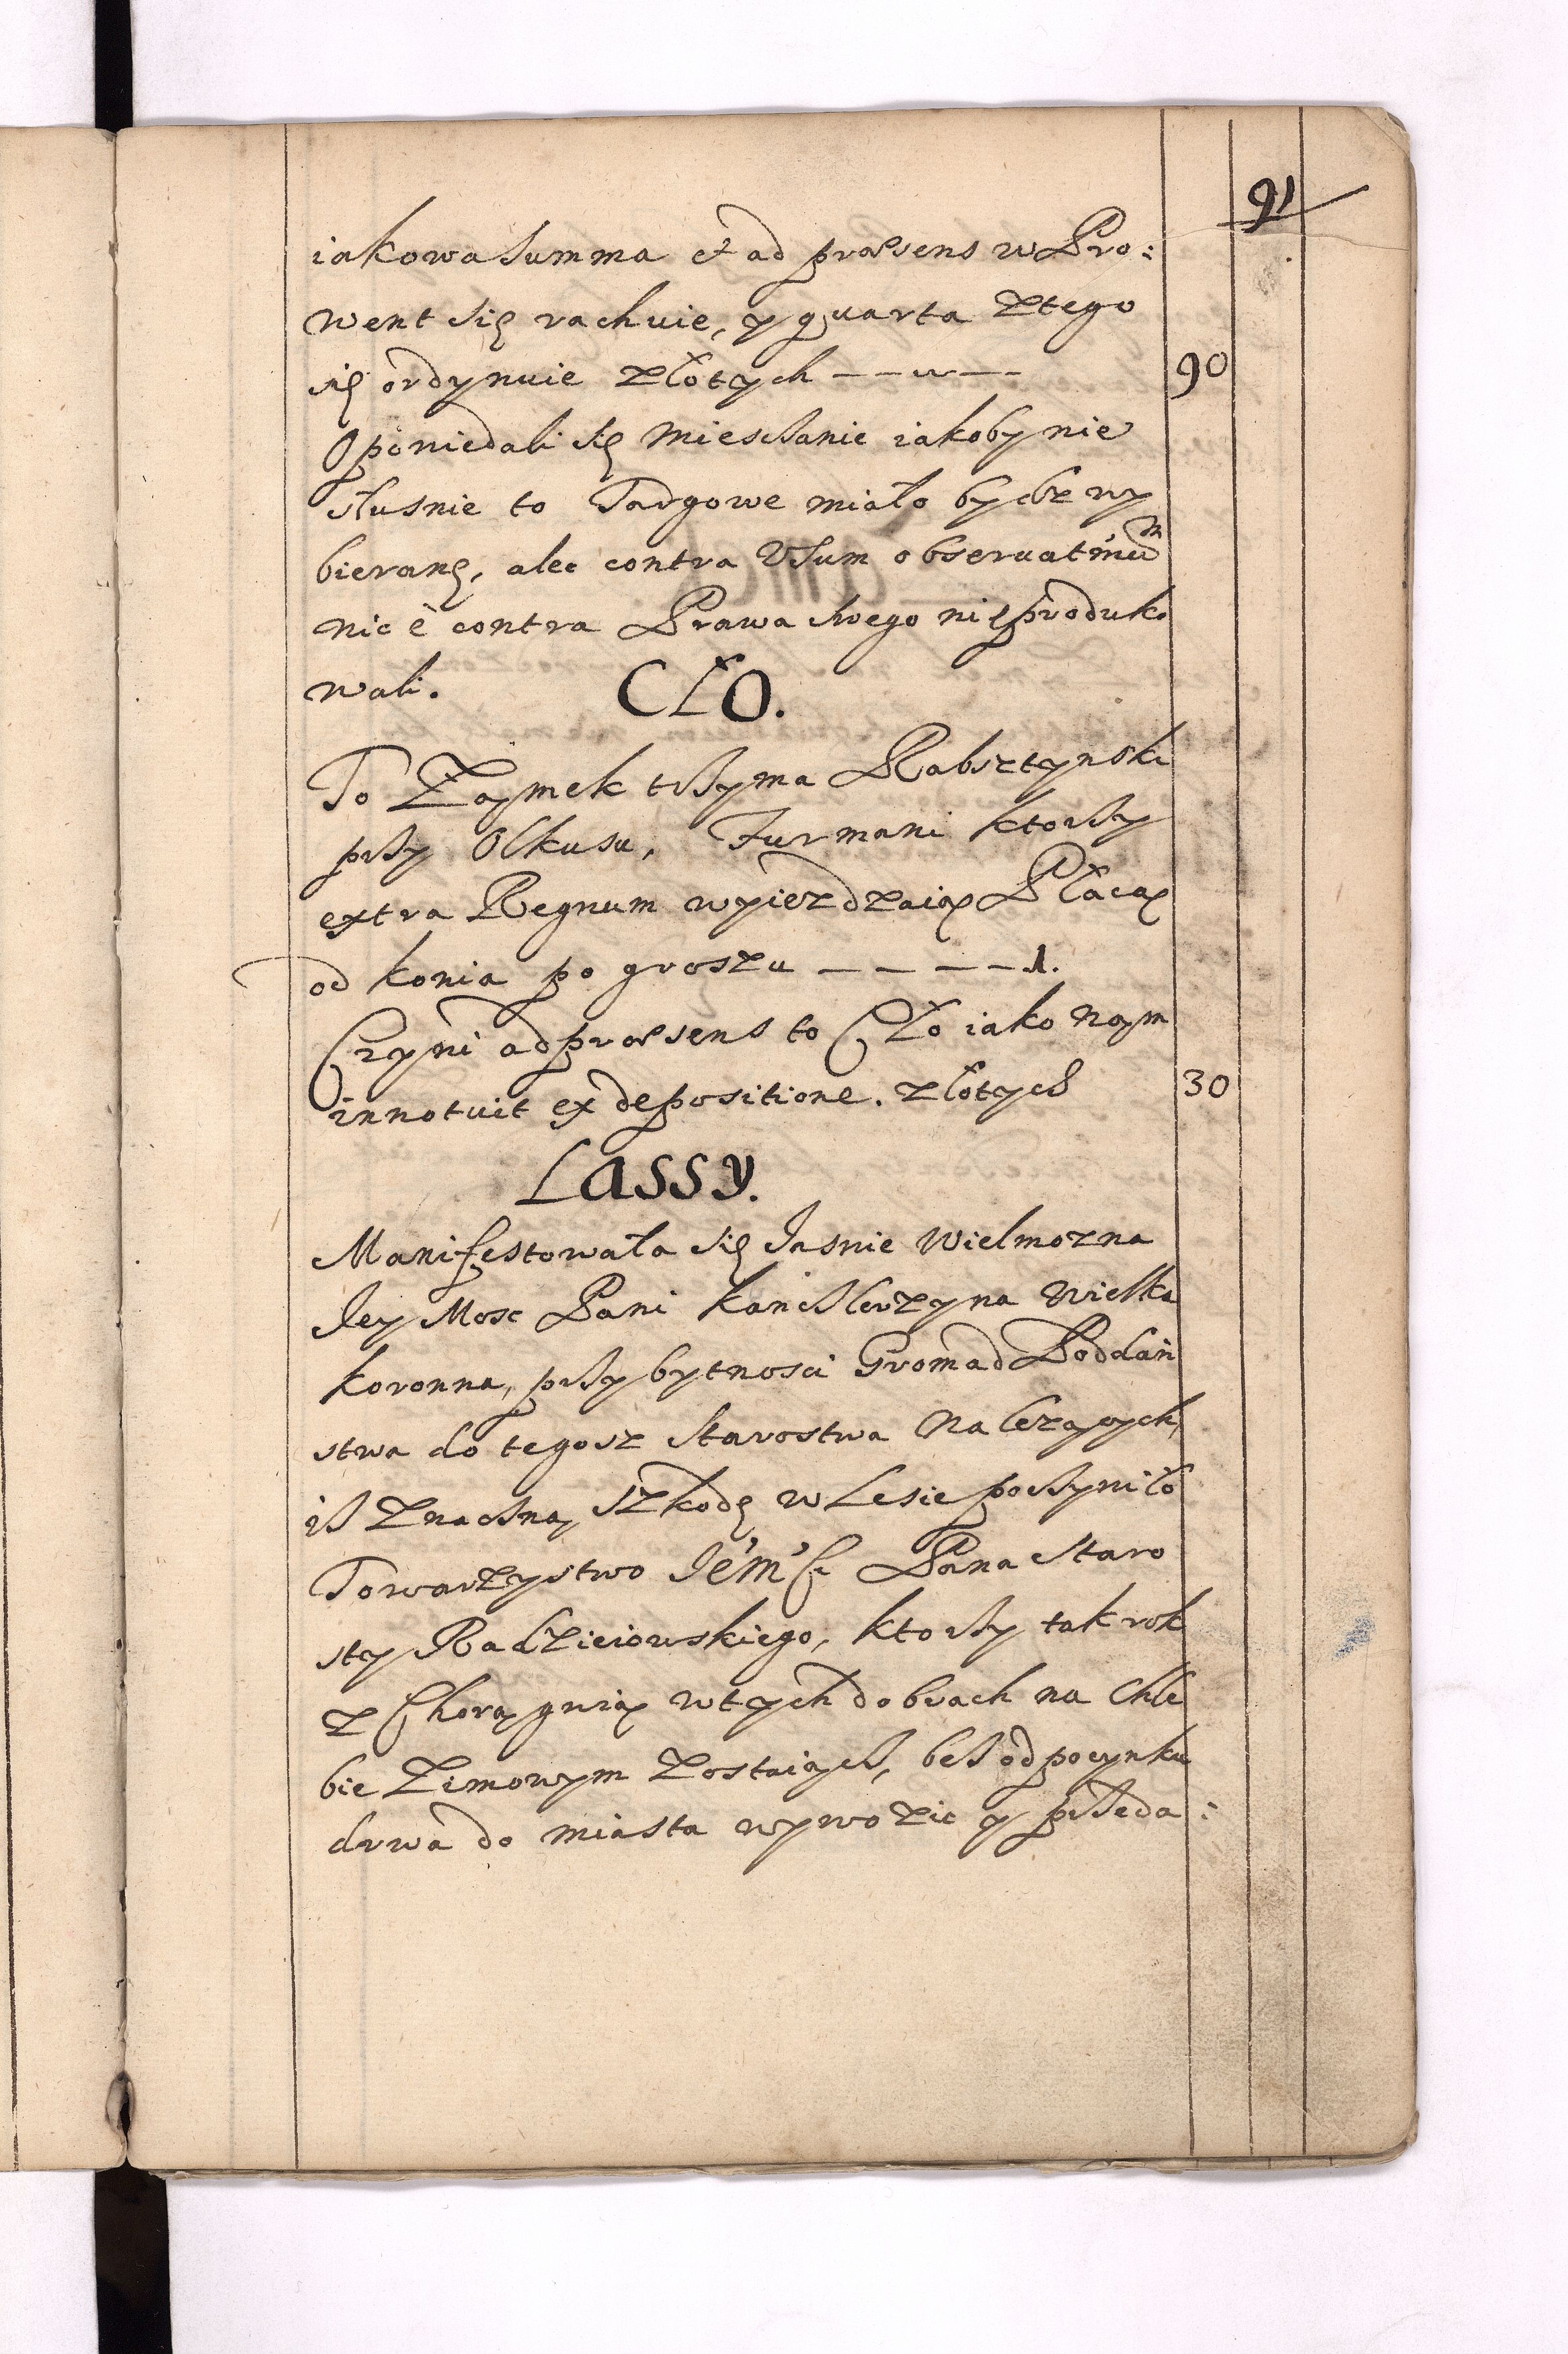 91
iakowa Summa et ad præsens w Pro:
went się rachuie, y quarta z tego
się ordynuie złotych — — — — 90
Oponiedali się Miesczanie iakoby nie
słusnie to Targowe miało bydz wy
bierane, alec contra Usum observatum
nic è contra Prawa swego nie produko
wali. CŁO.
To Zaymek trzyma Rabsztynski
przy Olkusu, Furmani ktorzy
extra Regnum wyiezdzaią Płacą
od konia po groszu — — — — 1.
Czyni ad præsens to Cło iako nam
innotuit ex depositione. złotych 30
Lassy.
Manifestowała się Jasnie Wielmozna
Jey Mosc Pani Kanclerzyna Wielka
Koronna, przy bytnosci Gromad Poddań
stwa do tegosz Starostwa należących,
isz znaczną szkodę w Lesie poczyniło
Towarzystwo Je'm'ści Pana Staro
sty Radzieiowskiego, ktorzy tak rok
z Chorągwią w tych dobrach na Chle
bie Zimowym zostaiącz, besz odpocynku
drwa do miasta wywozic y przeda: